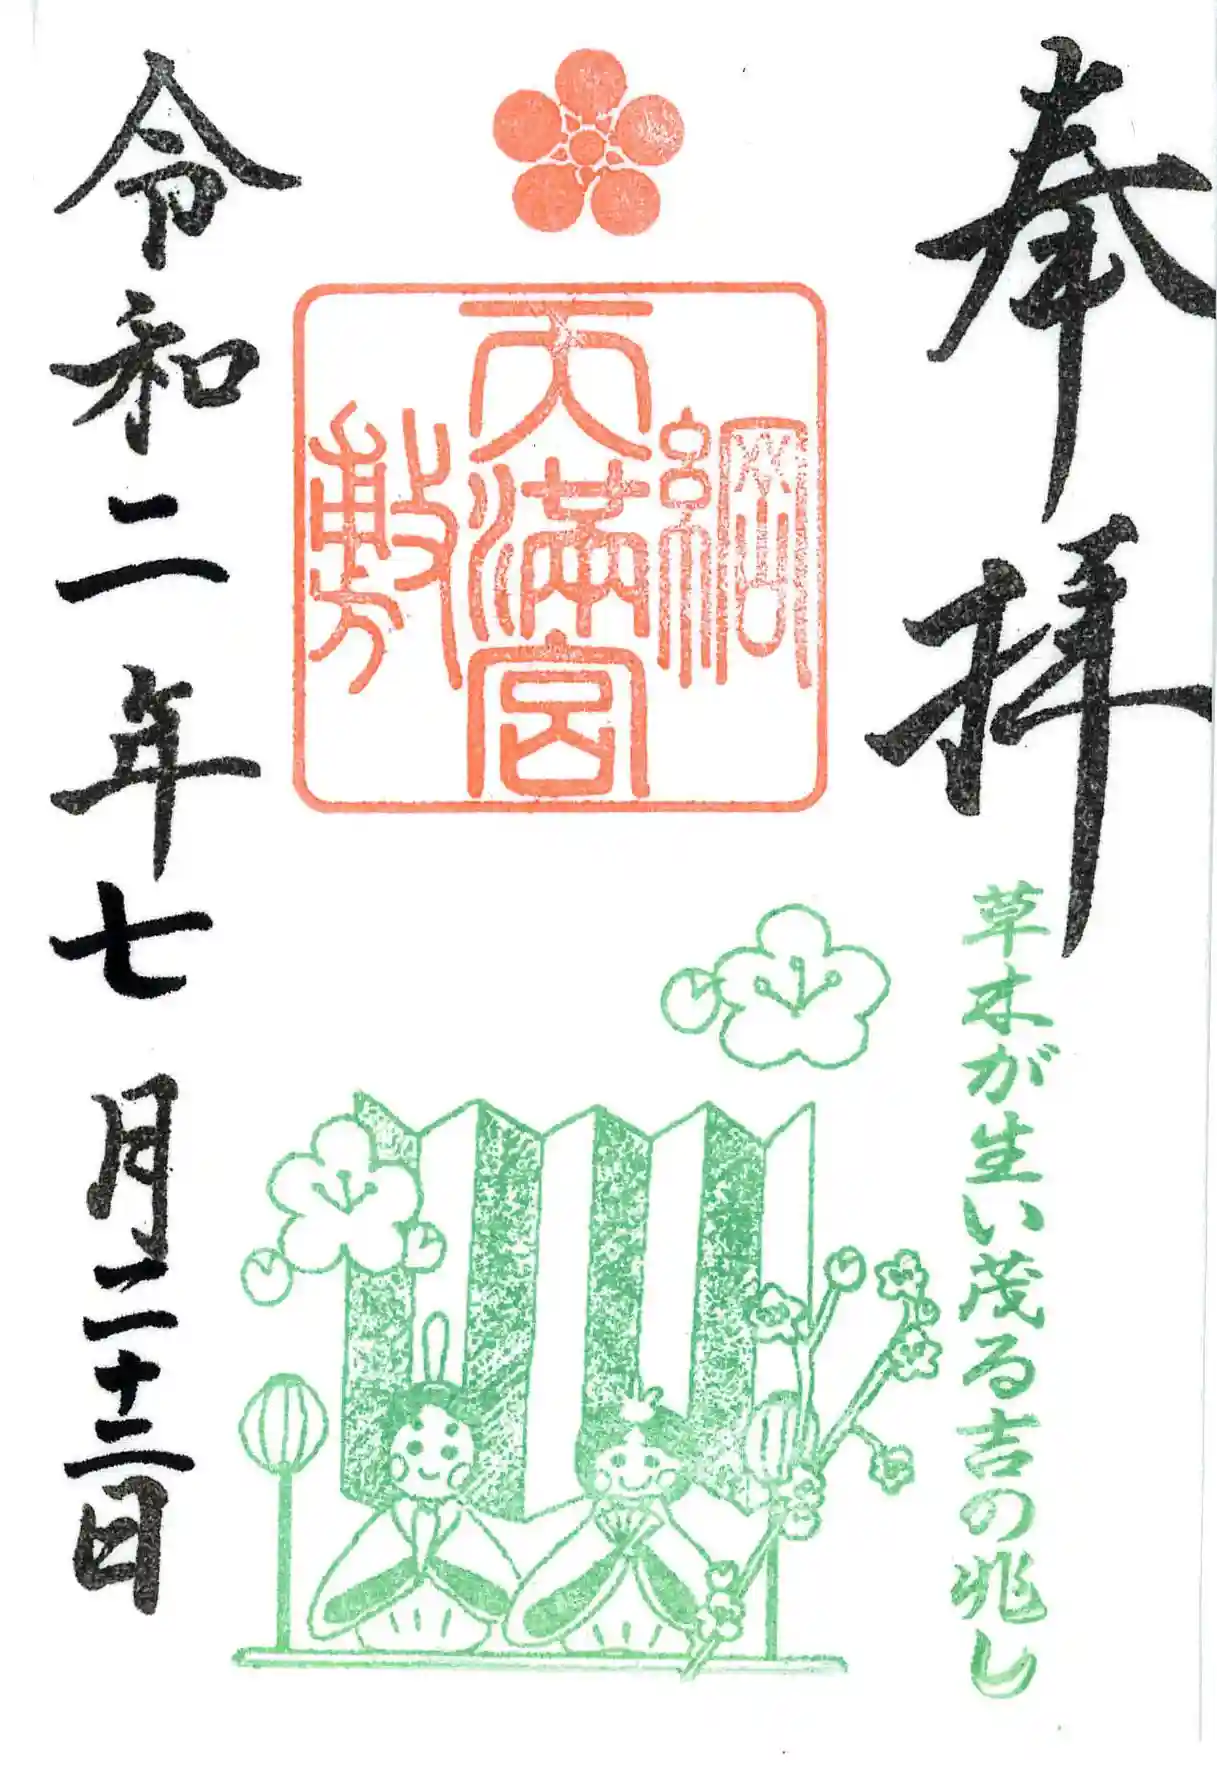 奉拝
草木が生い茂る吉の兆し
綱
天満宮
敷
令和二年七月二十三日